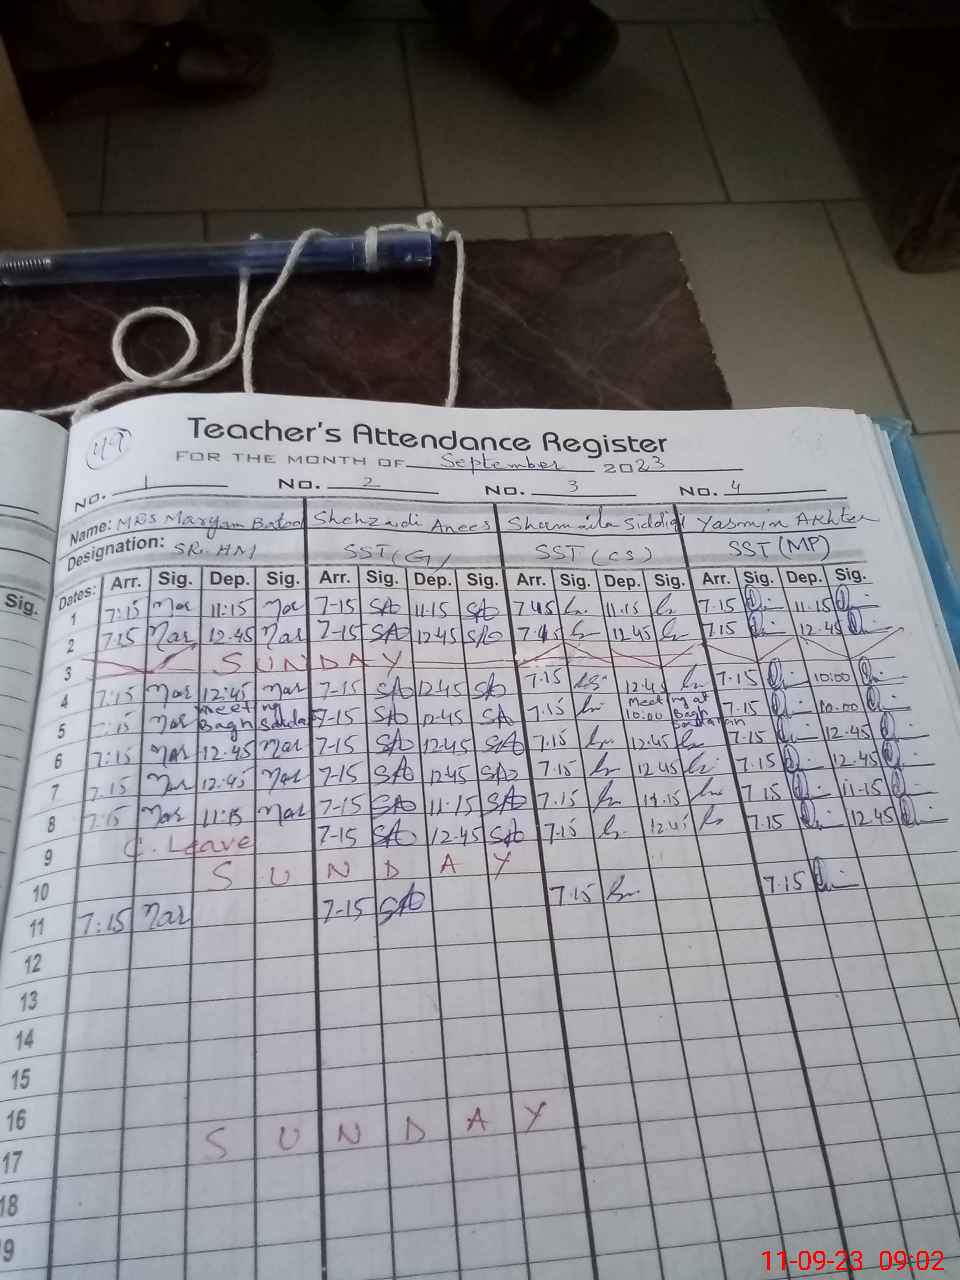 49
Teacher's Attendance Register
FOR THE MONTH OF September 2023
NO. 1 NO. 2 NO. 3 NO. 4
Name: MRS Maryam Batool Shehzadi Anees Shamaila Siddiqi Yasmin Akhter
Designation: SR. HM SST (G) SST (CS) SST (MP)
Sig. Dates: Arr. Sig. Dep. Sig. Arr. Sig. Dep. Sig. Arr. Sig. Dep. Sig. Arr. Sig. Dep. Sig.
1 7:15 Mar 11:15 Mar 7-15 SAD 11-15 SAD 7.45 11.15 7.15 11.15
2 7:15 Mar 12.45 Mar 7-15 SAD 12.45 SAD 7.45 12.45 7.15 12.45
3 SUNDAY
4 7:15 Mar 12:45 Mar 7-15 SAD 12.45 SAD 7.15 12.45 7.15 10:00
5 7:15 Mar Meeting Bagh 7-15 SAD 12.45 SAD 7.15 Meeting at 10:00 Bagh 7.15 10.00
6 7:15 Mar 12.45 Mar 7-15 SAD 12.45 SAD 7.15 12.45 7.15 12.45
7 7.15 Mar 12.45 Mar 7-15 SAD 12.45 SAD 7.15 12.45 7.15 12.45
8 7:15 Mar 11:15 Mar 7-15 SAD 11-15 SAD 7.15 11.15 7.15 11.15
9 C. Leave 7-15 SAD 12.45 SAD 7.15 12.45 7.15 12.45
10 SUNDAY
11 7:15 Mar 7-15 SAD 7.15 7.15
12
13
14
15
16
17 SUNDAY
18
19
11-09-23 09:02